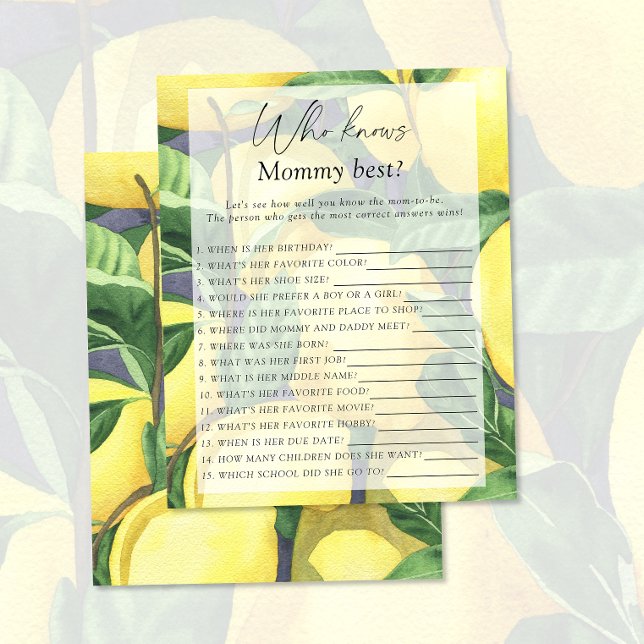 Who knows
Mommy best?
Let's see how well you know the mom-to-be.
The person who gets the most correct answers wins!
1. WHEN IS HER BIRTHDAY?
2. WHAT'S HER FAVORITE COLOR?
3. WHAT'S HER SHOE SIZE?
4. WOULD SHE PREFER A BOY OR A GIRL?
5. WHERE IS HER FAVORITE PLACE TO SHOP?
6. WHERE DID MOMMY AND DADDY MEET?
7. WHERE WAS SHE BORN?
8. WHAT WAS HER FIRST JOB?
9. WHAT IS HER MIDDLE NAME?
10. WHAT'S HER FAVORITE FOOD?
11. WHAT'S HER FAVORITE MOVIE?
12. WHAT'S HER FAVORITE HOBBY?
13. WHEN IS HER DUE DATE?
14. HOW MANY CHILDREN DOES SHE WANT?
15. WHICH SCHOOL DID SHE GO TO?